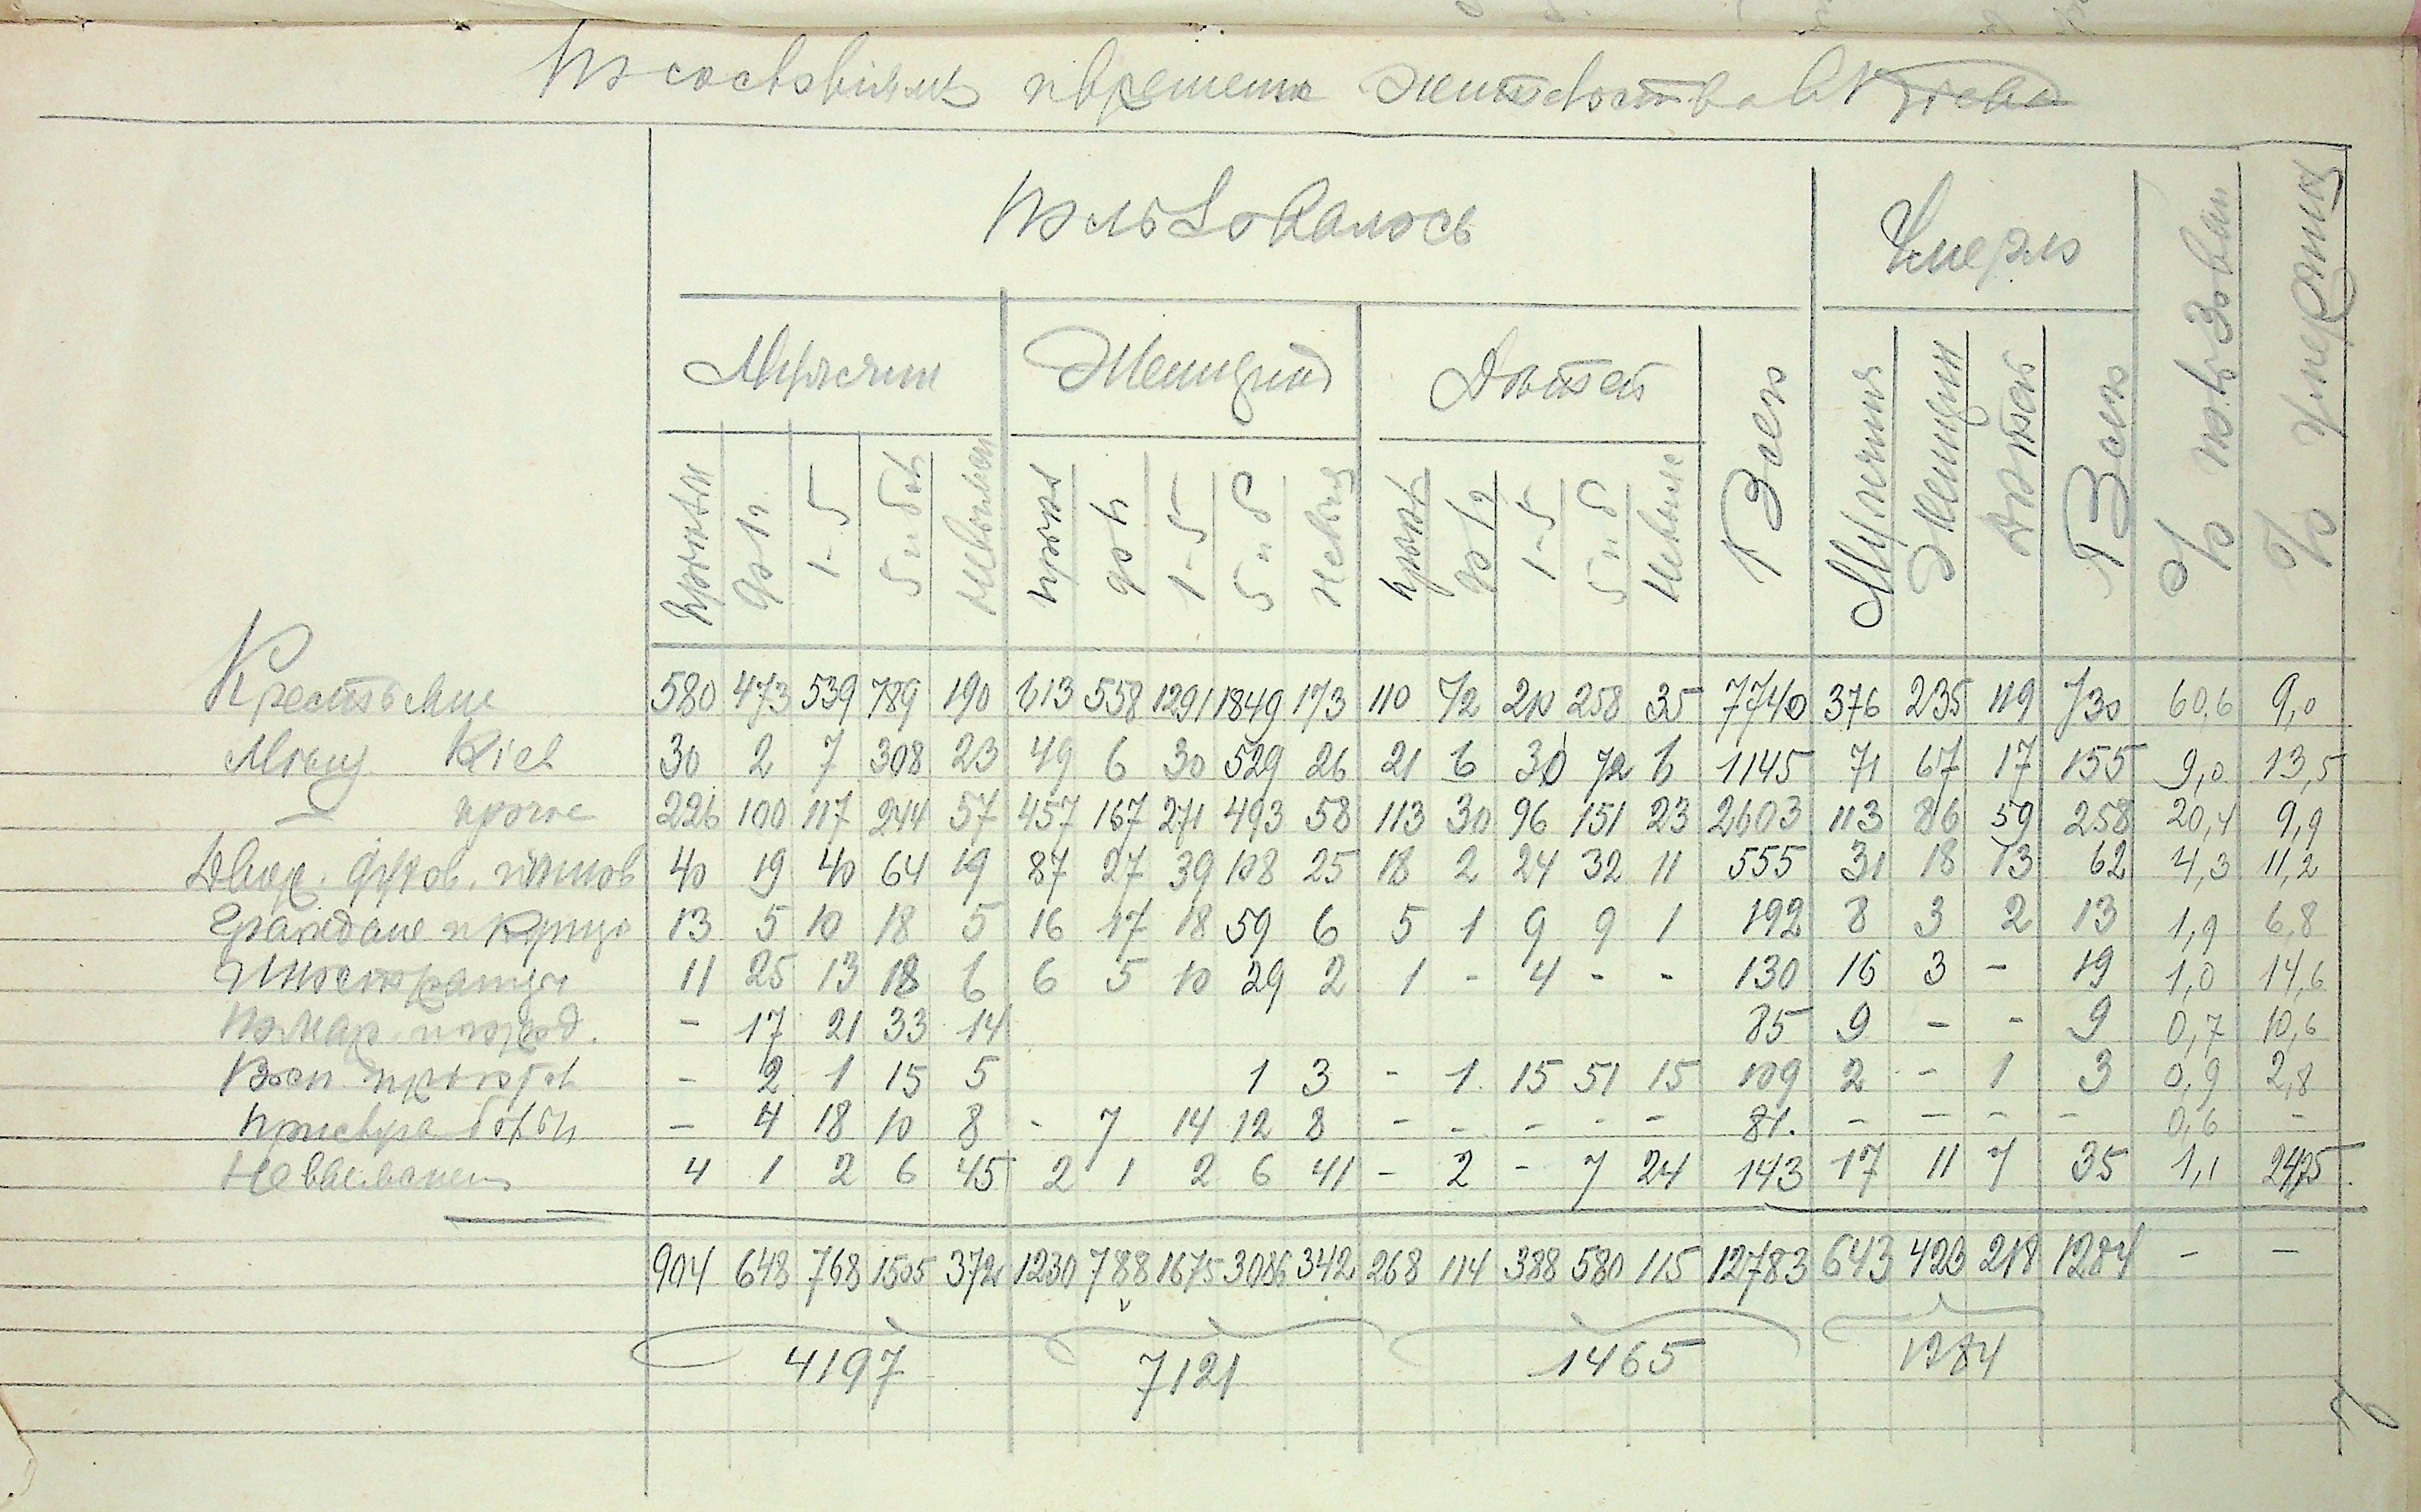 По сословіямъ и времени жительства въ Кіевѣ
Пользовалось
Умерло
% пользов.
% умершихъ
Мужчин
Женщинъ
Дѣтей
Всего
Мужчинъ
Женщин
Дѣтей
Всего
до 1 г.
1-5
5 и бол
Невыяснен
до 1г
1-5
5 и б
Невыя
до 1 г
1-5
5 и б
Невыясн
Крестьяне 580 473 539 789 190 613 558 1291 1849 173 110 72 210 258 35 7740 376 235 119 730 60,6 9,0
Мѣщ Кіев 30 2 7 308 23 49 6 30 529 26 21 6 30 72 6 1145 71 67 17 155 9,0 13,5
— прочіе 226 100 117 244 57 457 167 271 493 58 113 30 96 151 23 2603 113 86 59 258 20,4 9,9
Двор. духов. чинов 40 19 40 64 19 87 27 39 108 25 18 2 24 32 11 555 31 18 13 62 4,3 11,2
Граждане и купцы 13 5 10 18 5 16 17 18 59 6 5 1 9 9 1 192 8 3 2 13 1,9 6,8
Иностранцы 11 25 13 18 6 6 5 10 29 2 1 - 4 - - 130 16 3 - 19 1,0 14,6
Пожар. и город. - 17 21 33 14 85 9 - - 9 0,7 10,6
Восп. пріютов - 2 1 15 5 1 3 - 1 15 51 15 109 2 - 1 3 0,9 2,8
- 4 18 10 8 - 7 14 12 8 - - - - - 81. - - - - 0,6 -
Невыяснен 4 1 2 6 45 2 1 2 6 41 - 2 - 7 24 143 17 11 7 35 1,1 24,5
904 648 768 1505 372 1230 788 1675 3086 342 268 114 388 580 115 12783 643 423 218 1284 - -
4197 7121 1465 1284